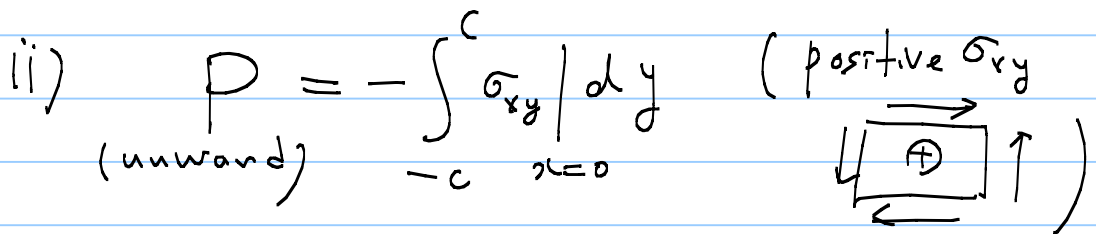 ii) P = -∫_{-c}^{c} σ_{xy} |_{x=0} dy (positive σ_{xy} ⊕)
(unward)